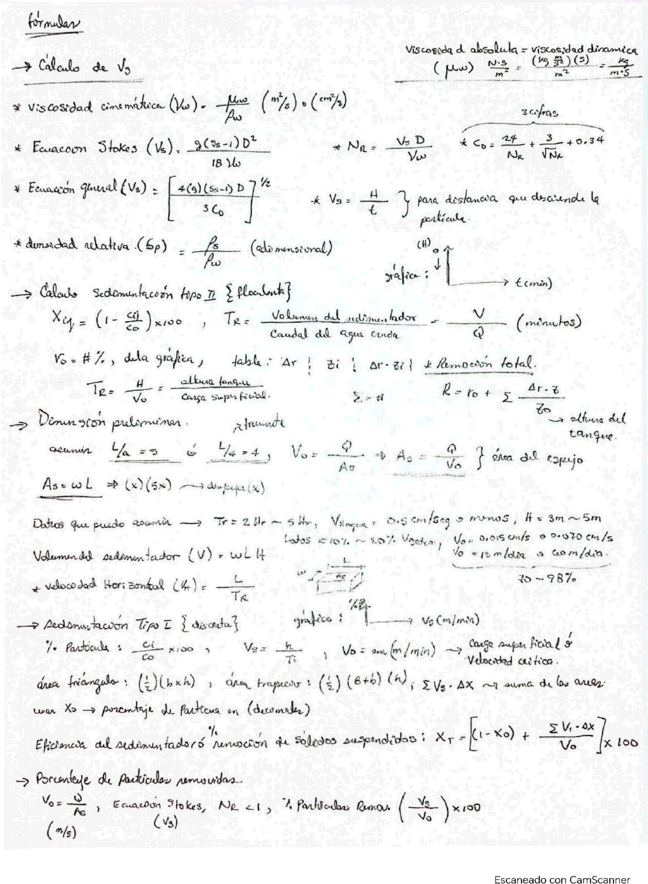 fórmulas
Viscosidad absoluta = viscosidad dinamica
→ Cálculo de Vs
(μw) N·S/m² = (kg m/s²)(s)/m² = kg/m·s
* viscosidad cinemática (Vw) = μw/ρw (m²/s) o (cm²/s)
3 cifras
* Ecuacoon Stokes (Vs) = g(Ss-1)D²/18 Vw
* NR = Vs D/Vw
* CD = 24/NR + 3/√NR + 0.34
* Ecuación general (Vs) = [4(g)(Ss-1) D/3 CD]^1/2
* Vs = H/t } para distancia que desciende la partícula.
* densidad relativa (Sp) = ρs/ρw (adimensional)
gráfica : (H) t (min)
→ Calculo sedimentación tipo II {floculenta}
Xij = (1 - cij/co) x 100 , TR = Volumen del sedimentador/Caudal del agua = V/Q (minutos)
ro = # %, de la gráfica, tabla : Δr | zi | Δr·zi | * Remoción total.
TR = H/Vo = altura tanque/Carga superficial.
Σ = #
R = ro + Σ Δr·z/zo
→ altura del tanque.
→ Dimensión preliminar.
asumir L/a = 5 ó L/a = 4, Vo = Q/As → As = Q/Vo } área del espejo
As = wL ⇒ (x)(5x) → despejar (x)
Datos que puedo asumir → Tr = 2 Hr ~ 5 Hr, = 0.5 cm/seg o menos, H = 3m ~ 5m
Lodos = 10% ~ 20% , Vo = 0.015 cm/s o 0.070 cm/s
Volumen del sedimentador (V) = wLH
Vo = 12 m/dia o 60 m/dia.
70 ~ 98%
* velocidad Horizontal (Vh) = L/TR
w L As H
→ sedimentación Tipo I {discreta}
gráfica : % Vs (m/min)
% Partícula : ci/co x 100 , Vs = h/Ti , Vo = en (m/min) → Carga superficial ó Velocidad critica.
área triángulo : (1/2)(b x h) , área trapecio : (1/2)(B+b)(h) , Σ Vs·ΔX → suma de las areas
usar Xo → porcentaje de Particula en (decimales)
Eficiencia del sedimentador ó % remoción de sólidos suspendidos : XT = [(1-Xo) + Σ V1·ΔX/Vo] x 100
→ Porcentaje de Partículas removidas.
Vo = Q/As , Ecuación Stokes, NR < 1, % Partículas Remov (Vs/Vo) x 100
(m/s)
(Vs)
Escaneado con CamScanner